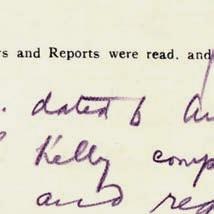 rs and Reports were read. and
dated 6 Au
Kelly comp
and reg